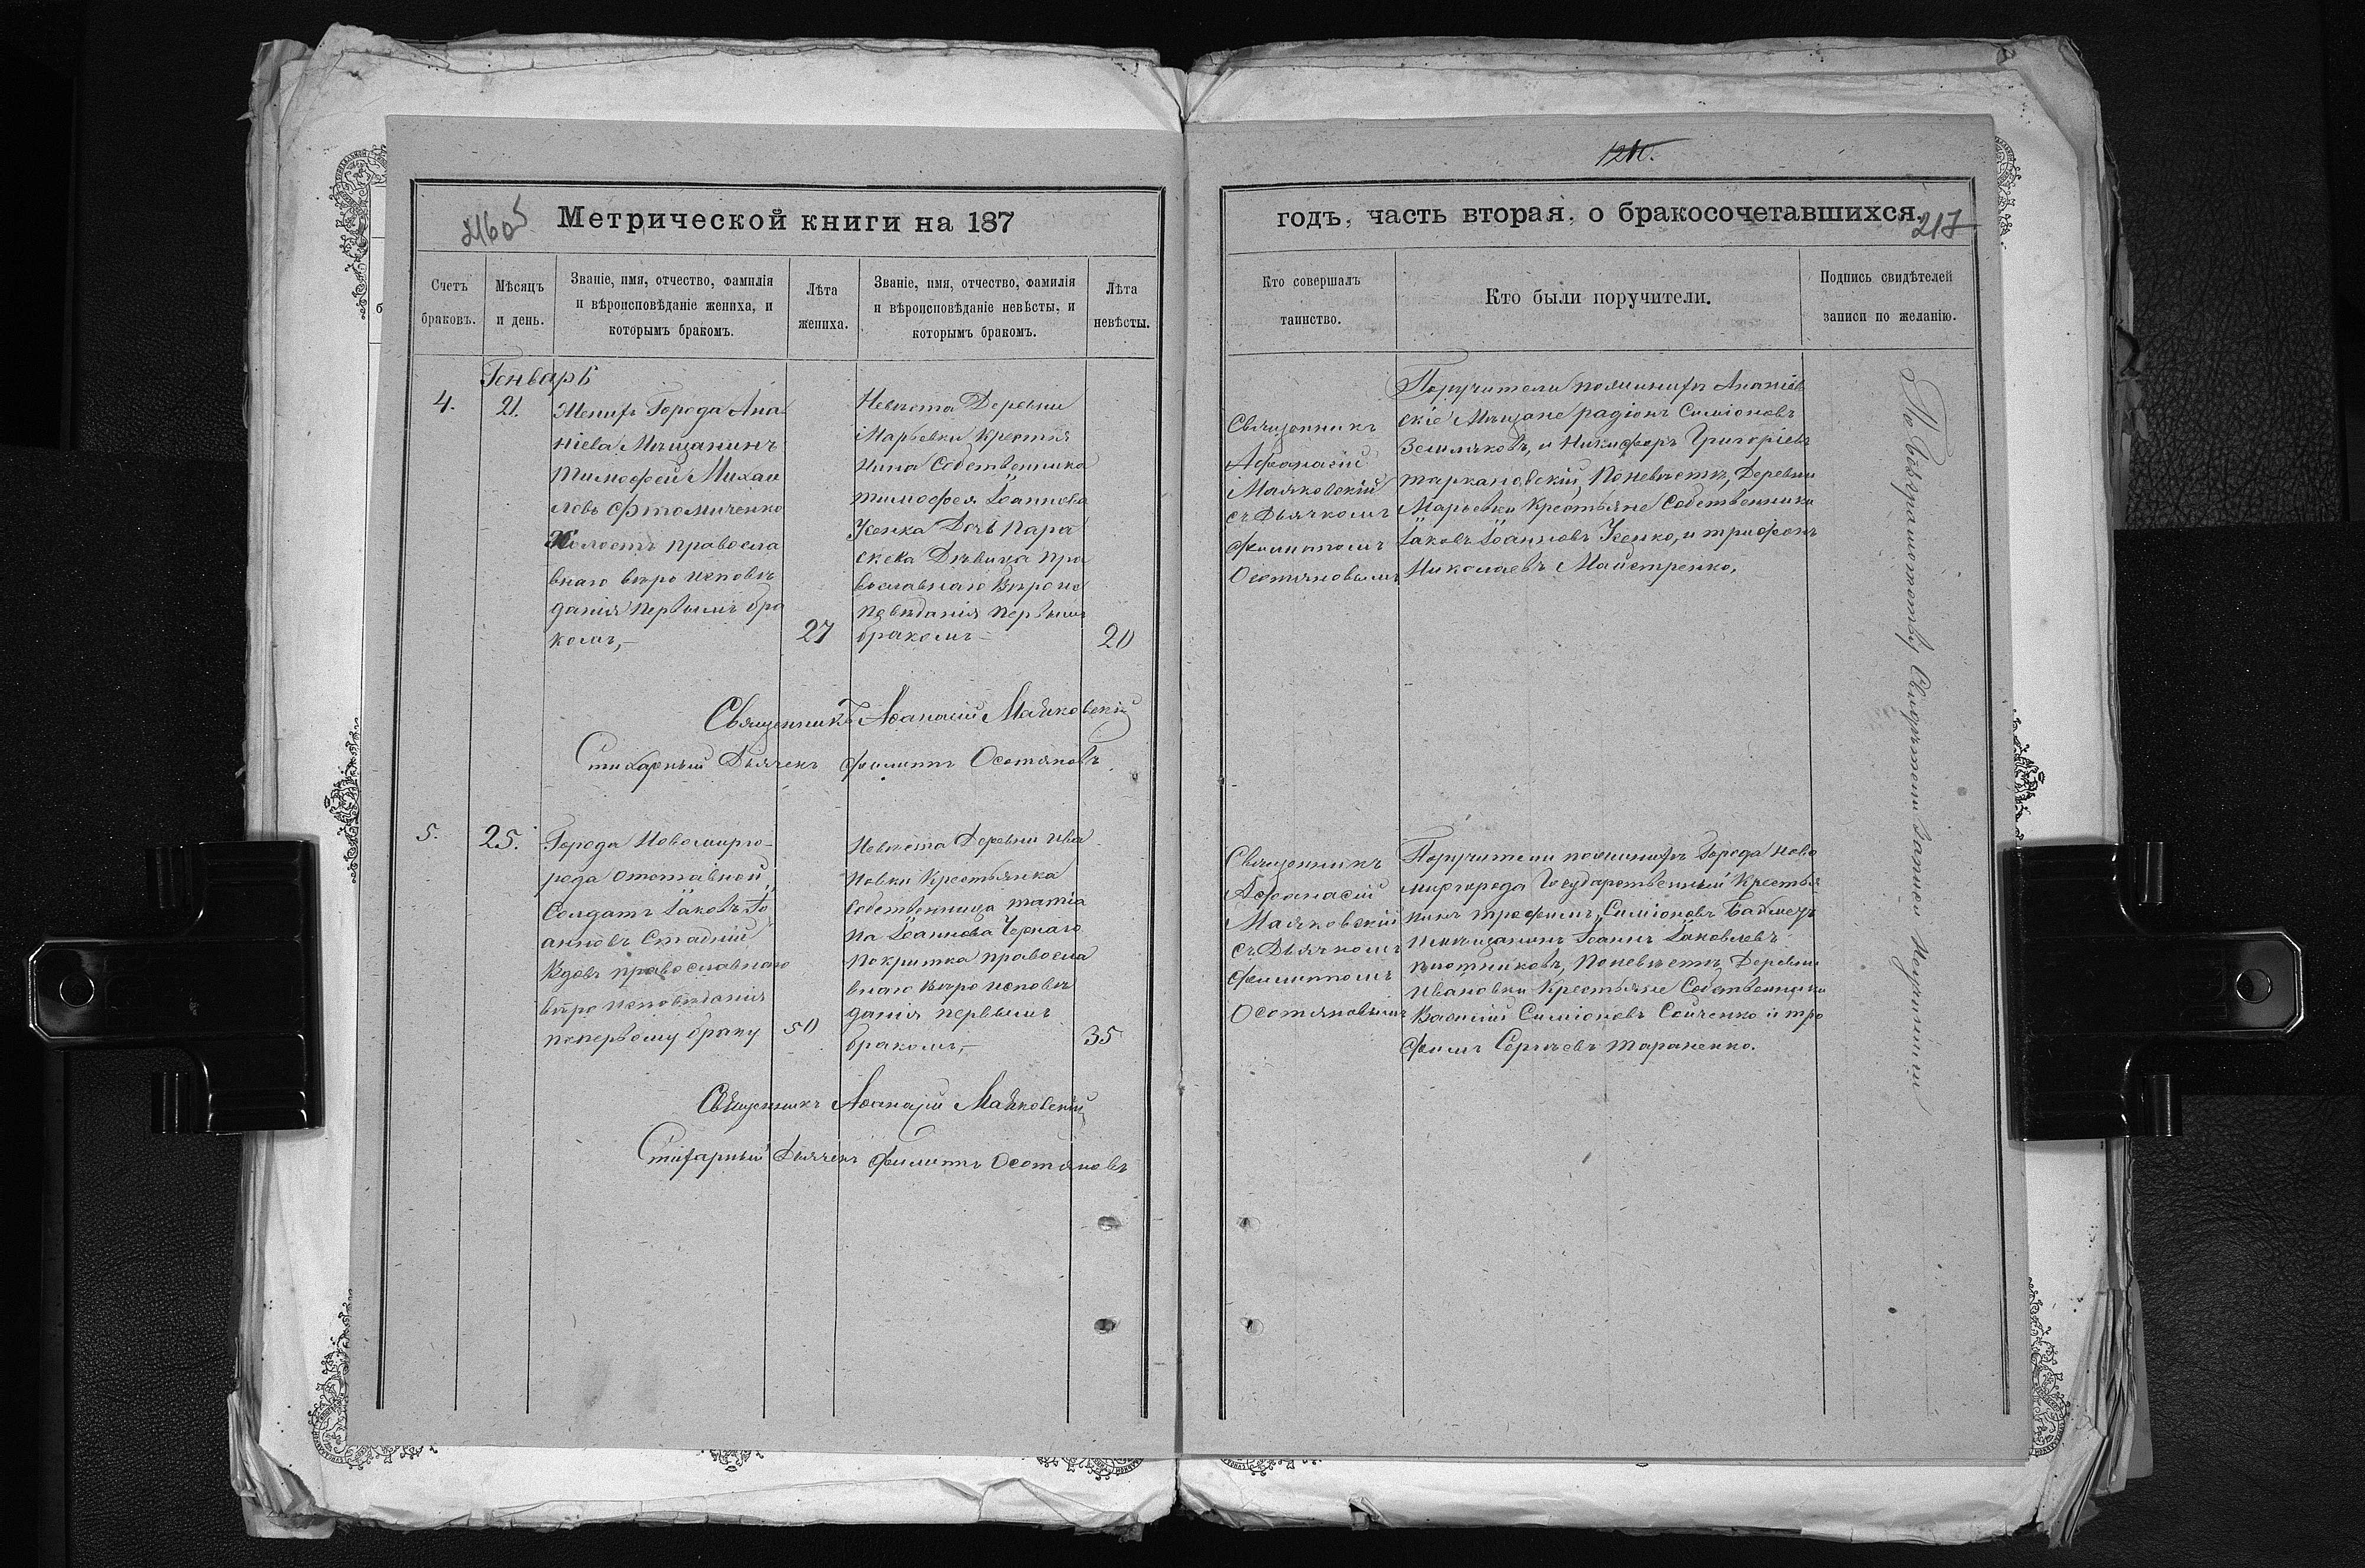 120.
217
Метрической книги на 187
годъ, часть вторая, о бракосочетавшихся.
Счетъ браковъ.
Мѣсяцъ и день.
Званіе, имя, отчество, фамилія
и вѣроисповѣданіе жениха, и
которымъ бракомъ.
Лѣта жениха.
Званіе, имя, отчество, фамилія
и вѣроисповѣданіе невѣсты, и
которымъ бракомъ.
Лѣта невѣсты.
Кто совершалъ
таинство.
Кто были поручители.
Подпись свидѣтелей
записи по желанію.
Генварь
4.
21.
Женихъ Города Ана
ніева Мѣщанинъ
Тимофей Михаи
ловъ
Холостъ православ
внаго вѣро исповѣ
данія первымъ бра
комъ,—
27
Невѣста Деревни
Марьевки Крестья
нина Собственника
тимофея Іоаннова
Усенка Дочь Пара
скева Дѣвица пра
вославнаго Вѣро ис
повѣданія первымъ
бракомъ—
20
Священникъ
Афанасій
Маяковскій
съ Дьячкомъ
Филиппомъ
Осотяновымъ
Поручители пожениху Ананіев
скіе Мѣщане радіонъ Симіоновъ
Земляковъ, и Никифоръ Григоріевъ
таркановскій, Поневѣстѣ, Деревни
Марьевки Крестьяне Собственники
Іаковъ Іоанновъ Усенко, и трифонъ
Николаевъ Майстренко.
Священникъ Аѳанасій Маяковскій
Стихарный Дьячекъ Филиппъ Осотяновъ
5.
25.
Города Новомирго-
рода отставной
Солдатъ Іаковъ Іо
анновъ
Вдовъ православнаго
вѣро исповѣданія
поперьвому браку
50
Невѣста Деревни Ива
новки Крестьянка
Собственница татіа
на Іоаннова Чернаго
покритка правосла
внаго Вѣро исповѣ
данія первымъ
бракомъ,—
35
Священникъ
Афанасій
Маяковскій
съ Дьячкомъ
Филиппомъ
Осотяновымъ
Поручители пожениху Города Ново
миргорода Государственный Крестья
нинъ трофимъ, Симіоновъ
имѣщанинъ Іоаннъ Іаковлевъ
плотниковъ, Поневѣстѣ, Деревни
Ивановки Крестьяне Собственники
Василій Симіоновъ Сойченко и тро
фимъ Сергѣевъ тараненко.
Священникъ Аѳанасій Маяковскій
Стихарный Дьячекъ Филиппъ Осотяновъ
По безграмотству Свидѣтели записи